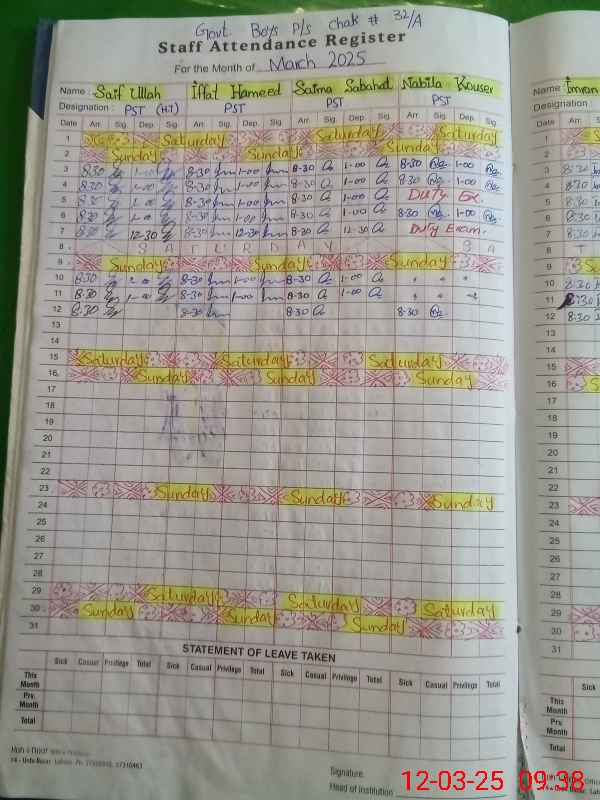 Govt. Boys P/s chak # 32/A
Staff Attendance Register
For the Month of March 2025
Name : Saif Ullah Iffat Hameed Saima Sabahat Nabila Kouser
Designation : PST (HT) PST PST PST
Date Arr. Sig. Dep. Sig. Arr. Sig. Dep. Sig. Arr. Sig. Dep. Sig. Arr. Sig. Dep. Sig.
1 Saturday Saturday Saturday
2 Sunday Sunday Sunday
3 8:30 1-00 8-30 1-00 8-30 1-00 8-30 1-00
4 8:30 1-00 8-30 1-00 8-30 1-00 8-30 1-00
5 8:30 1-00 8-30 1-00 8-30 1-00 DUTY Ex.
6 8:30 1-00 8-30 1-00 8-30 1-00 8-30 1-00
7 8:30 12-30 8-30 12-30 8-30 12-30 Duty Exam.
8 S A T U R D A Y S A
9 Sunday Sunday Sunday
10 8:30 8-30 1-00 8-30 1-00
11 8:30 1-00 8-30 1-00 8-30 1-00
12 8:30 8-30 8-30 8-30
13
14
15 Saturday Saturday Saturday
16 Sunday Sunday Sunday
17
18
19
20
21
22
23 Sunday Sunday Sunday
24
25
26
27
28
29 Saturday Saturday Saturday
30 Sunday Sunday Sunday
31
STATEMENT OF LEAVE TAKEN
Sick Casual Privilege Total Sick Casual Privilege Total Sick Casual Privilege Total Sick Casual Privilege Total
This Month
Prv. Month
Total
14 - Urdu Bazar, Lahore.
Signature.
Head of Institution
Name : Imran
Designation :
Date Arr.
1
2
3 8:30
4 8:30
5 8:30
6 8:30
7 8:30
8
9
10 8:30
11 8:30
12 8:30
13
14
15
16
17
18
19
20
21
22
23
24
25
26
27
28
29
30
31
Sick
This Month
Prv. Month
Total
12-03-25 09:38